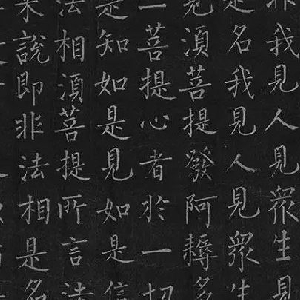 非我見人見衆生見
是名我見人見衆生
見湏菩提發阿耨多
菩提心者於一切
是知如是見如是信
法相湏菩提所言法
來說即非法相是名